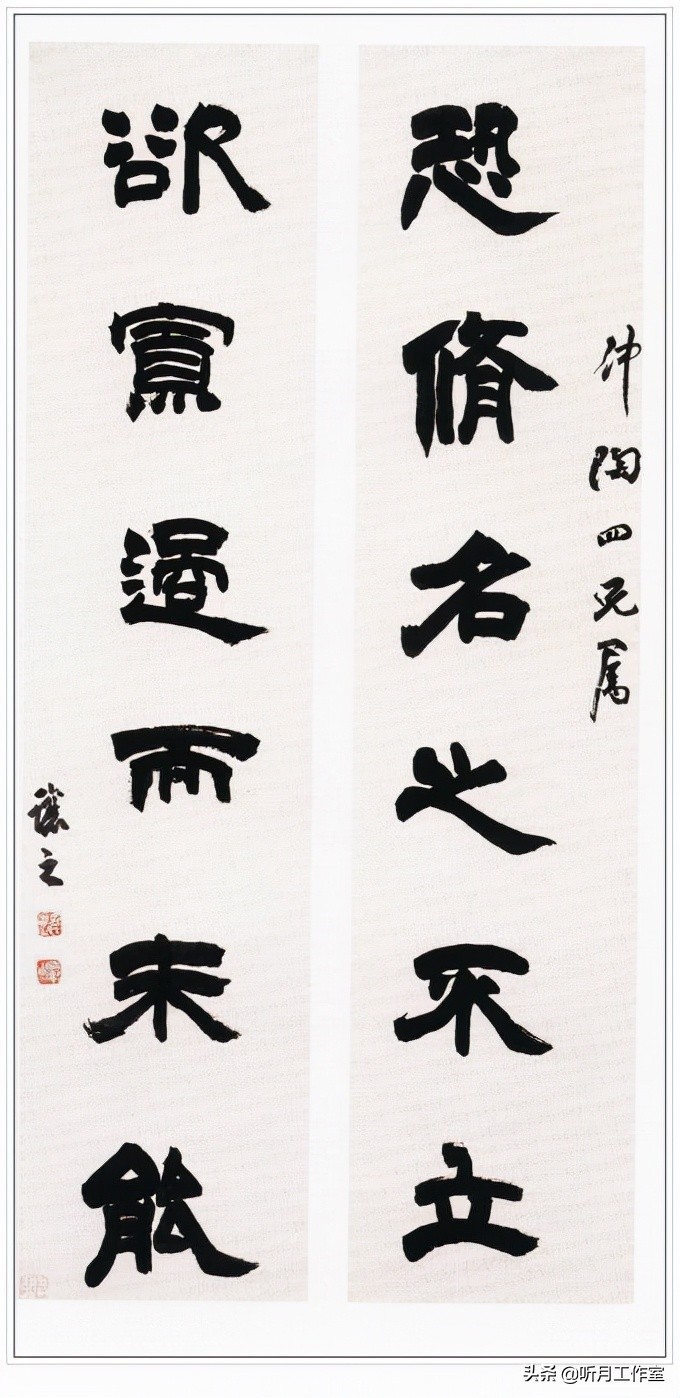 恐脩名之不立
仲陶四兄属
欲寡過而未能
讓之
头条 @听月工作室